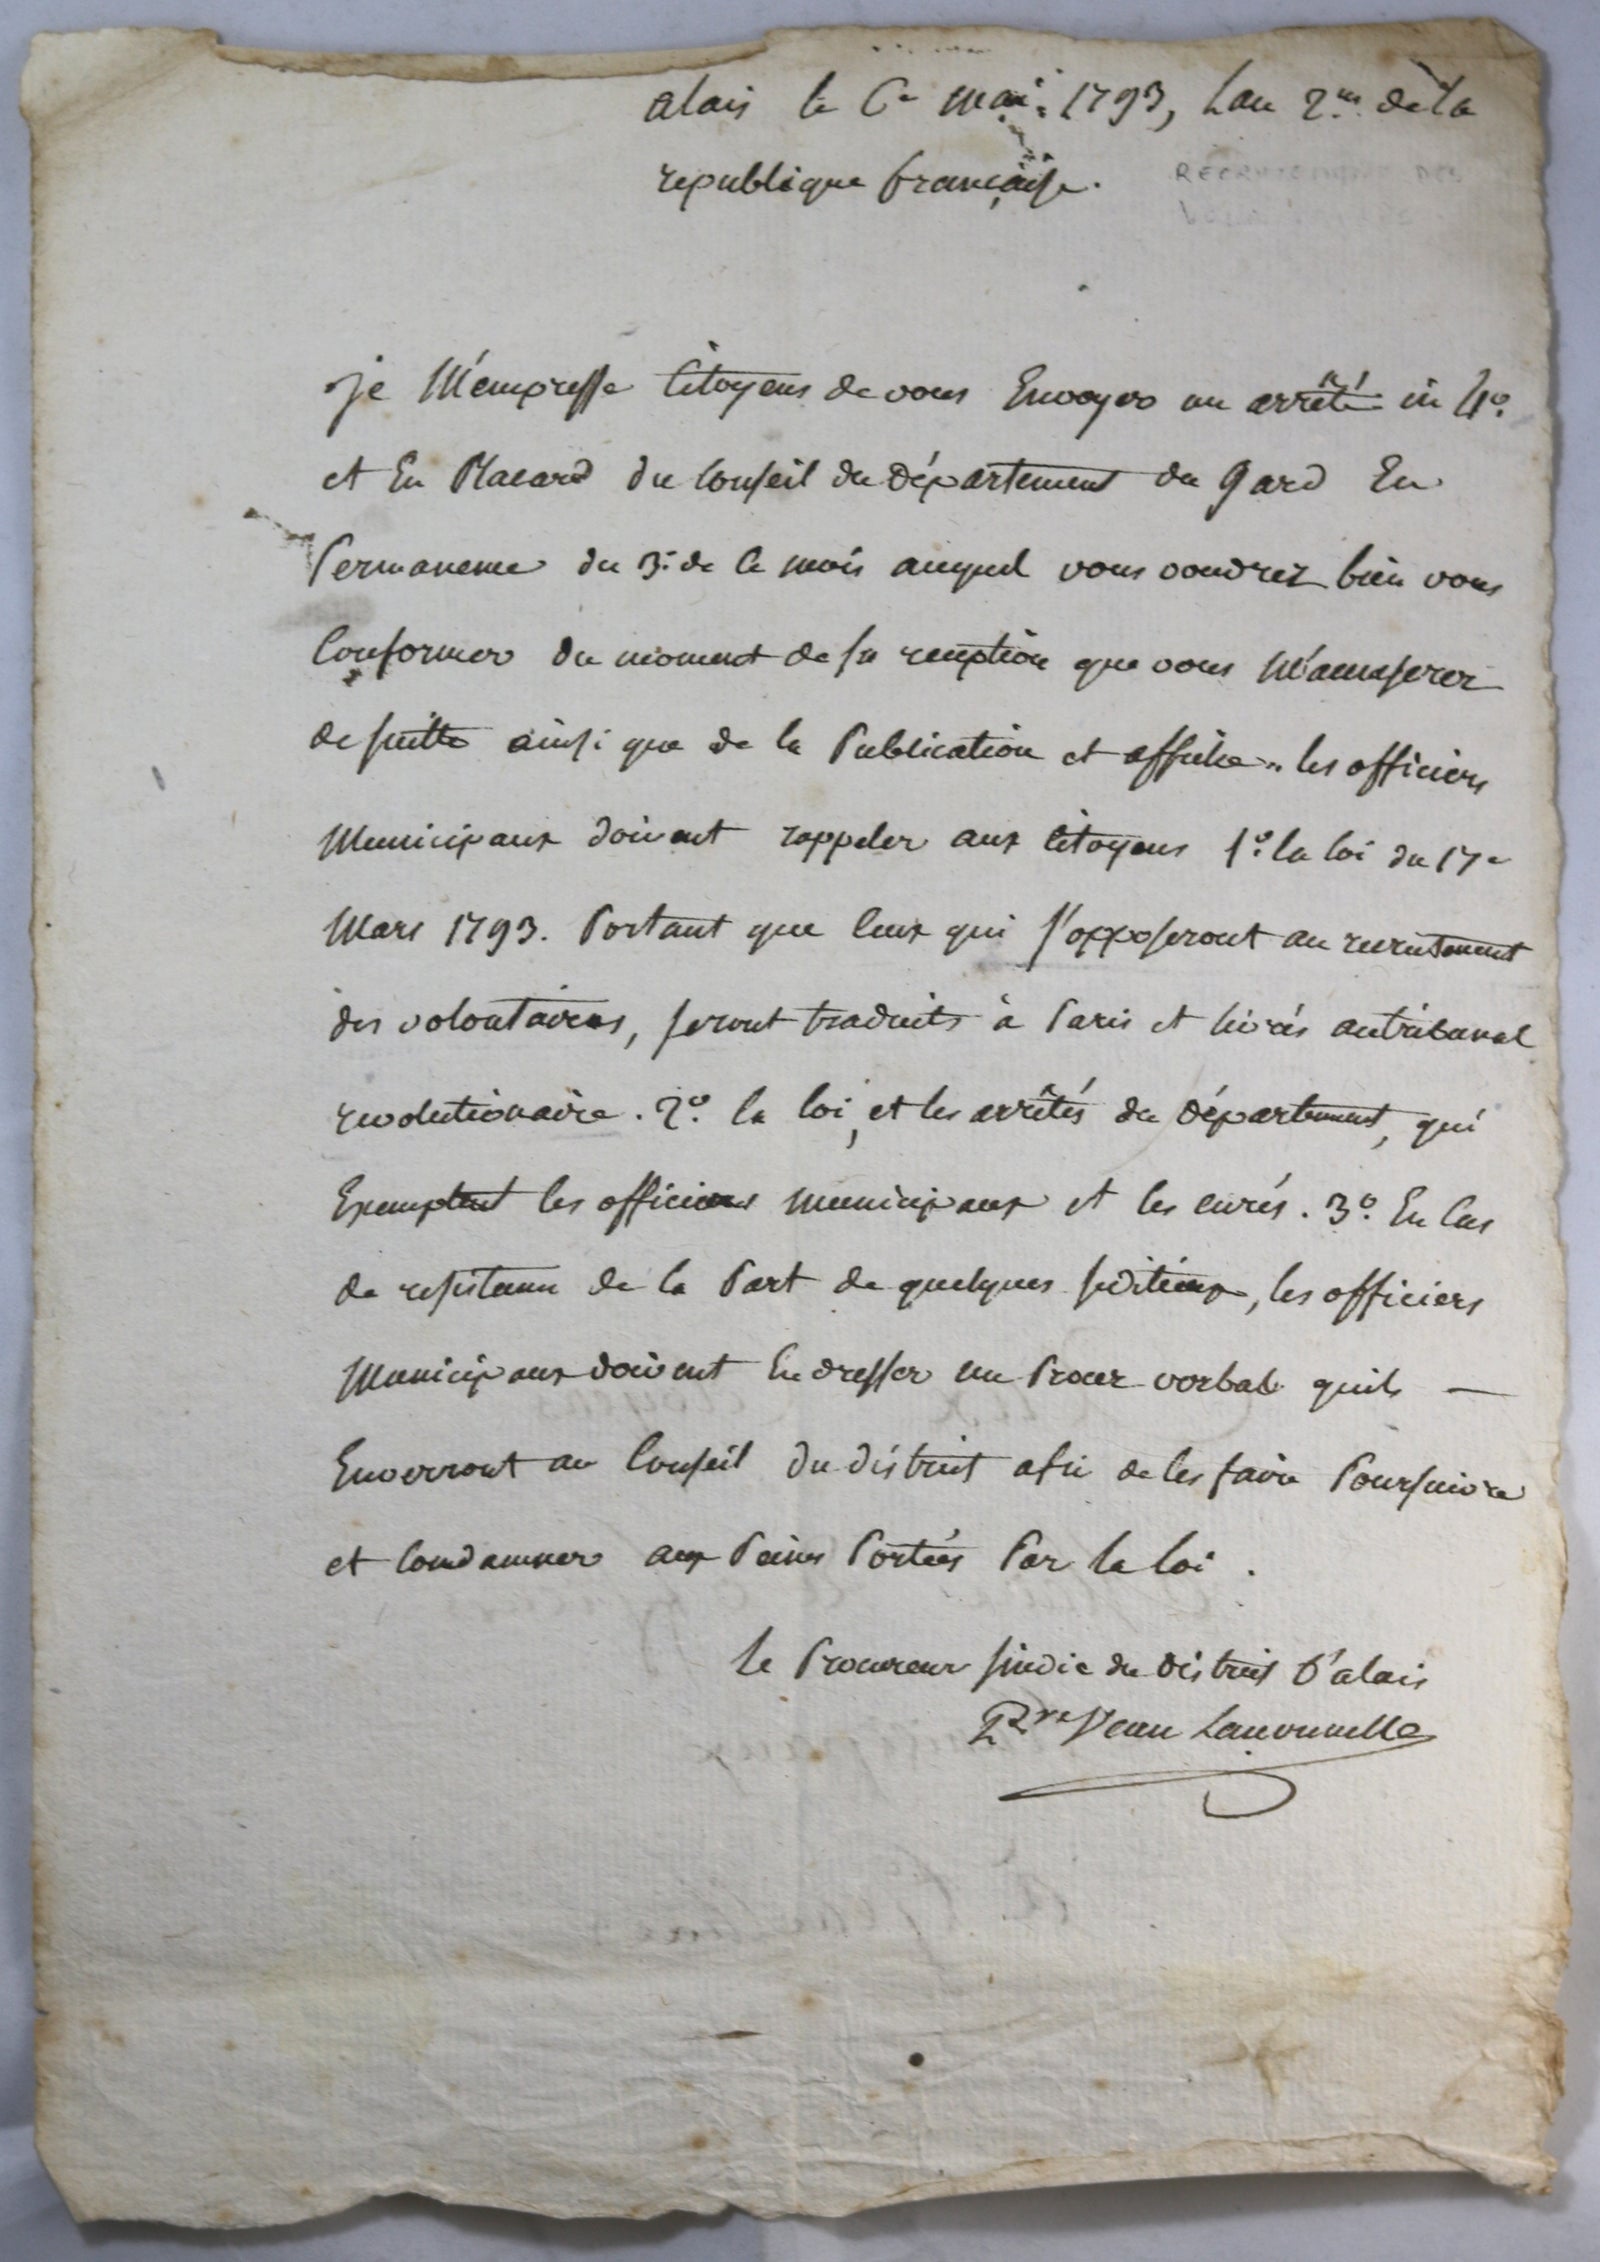 alais le 6e mai 1793, Lan 2me de la
republique française.
RECRUTEMENT DES
je M'empresse Citoyens de vous Envoyer un arrêté in 4o.
et En Placard du Conseil du Département du Gard En
Permanence du 3e de ce mois auquel vous voudrez bien vous
Conformer du moment de sa reception que vous M'accuserez
de suitte ainsi que de la Publication et affiche „ les officiers
Municipaux doivent rappeler aux Citoyens 1o. la loi du 17e
Mars 1793. Portant que Ceux qui s'opposeront au recrutement
des volontaires, seront traduits à Paris et livrés au tribunal
revolutionaire. 2o. la loi, et les arrêtés du Département, qui
Exemptent les officiers municipaux et les curés. 3o. En Cas
de resistance de la Part de quelques séditieux, les officiers
Municipaux doivent En dresser un Procez verbal quils —
Enverront au Conseil du district afin de les faire Poursuivre
et Condamner aux Peines Portées Par la loi.
Le Procureur sindic du District d'alais
Jean